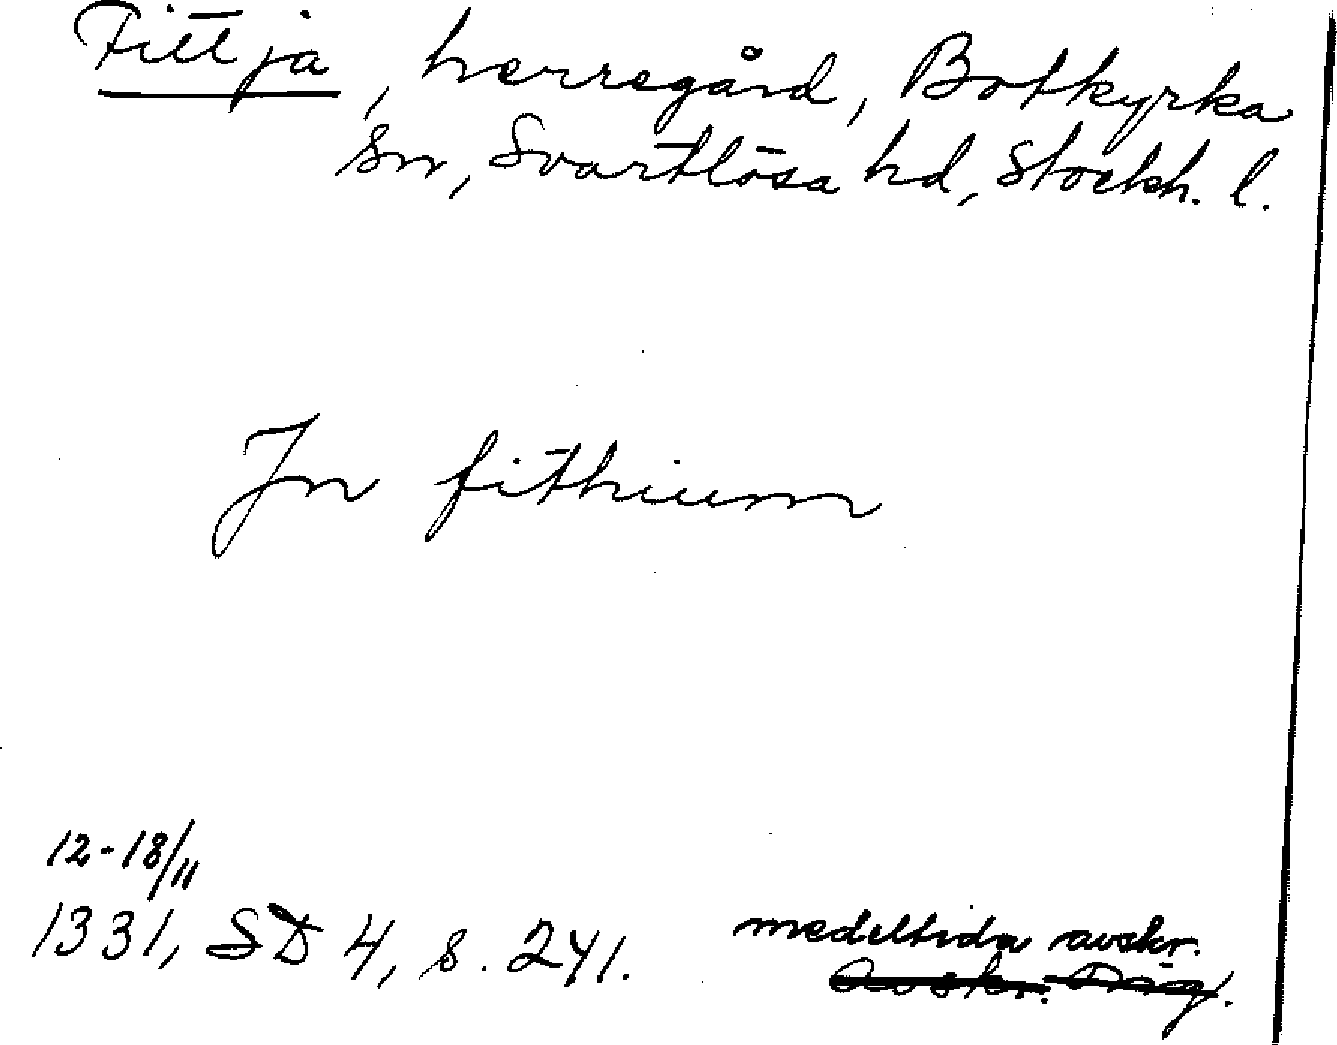 Fittja, herregård, Botkyrka
sn, Svartlösa hd, Stockh. l.
In fithium
12-18/11
1331, SD 4, s. 241.
medeltida avskr.
Avskr. Orig.